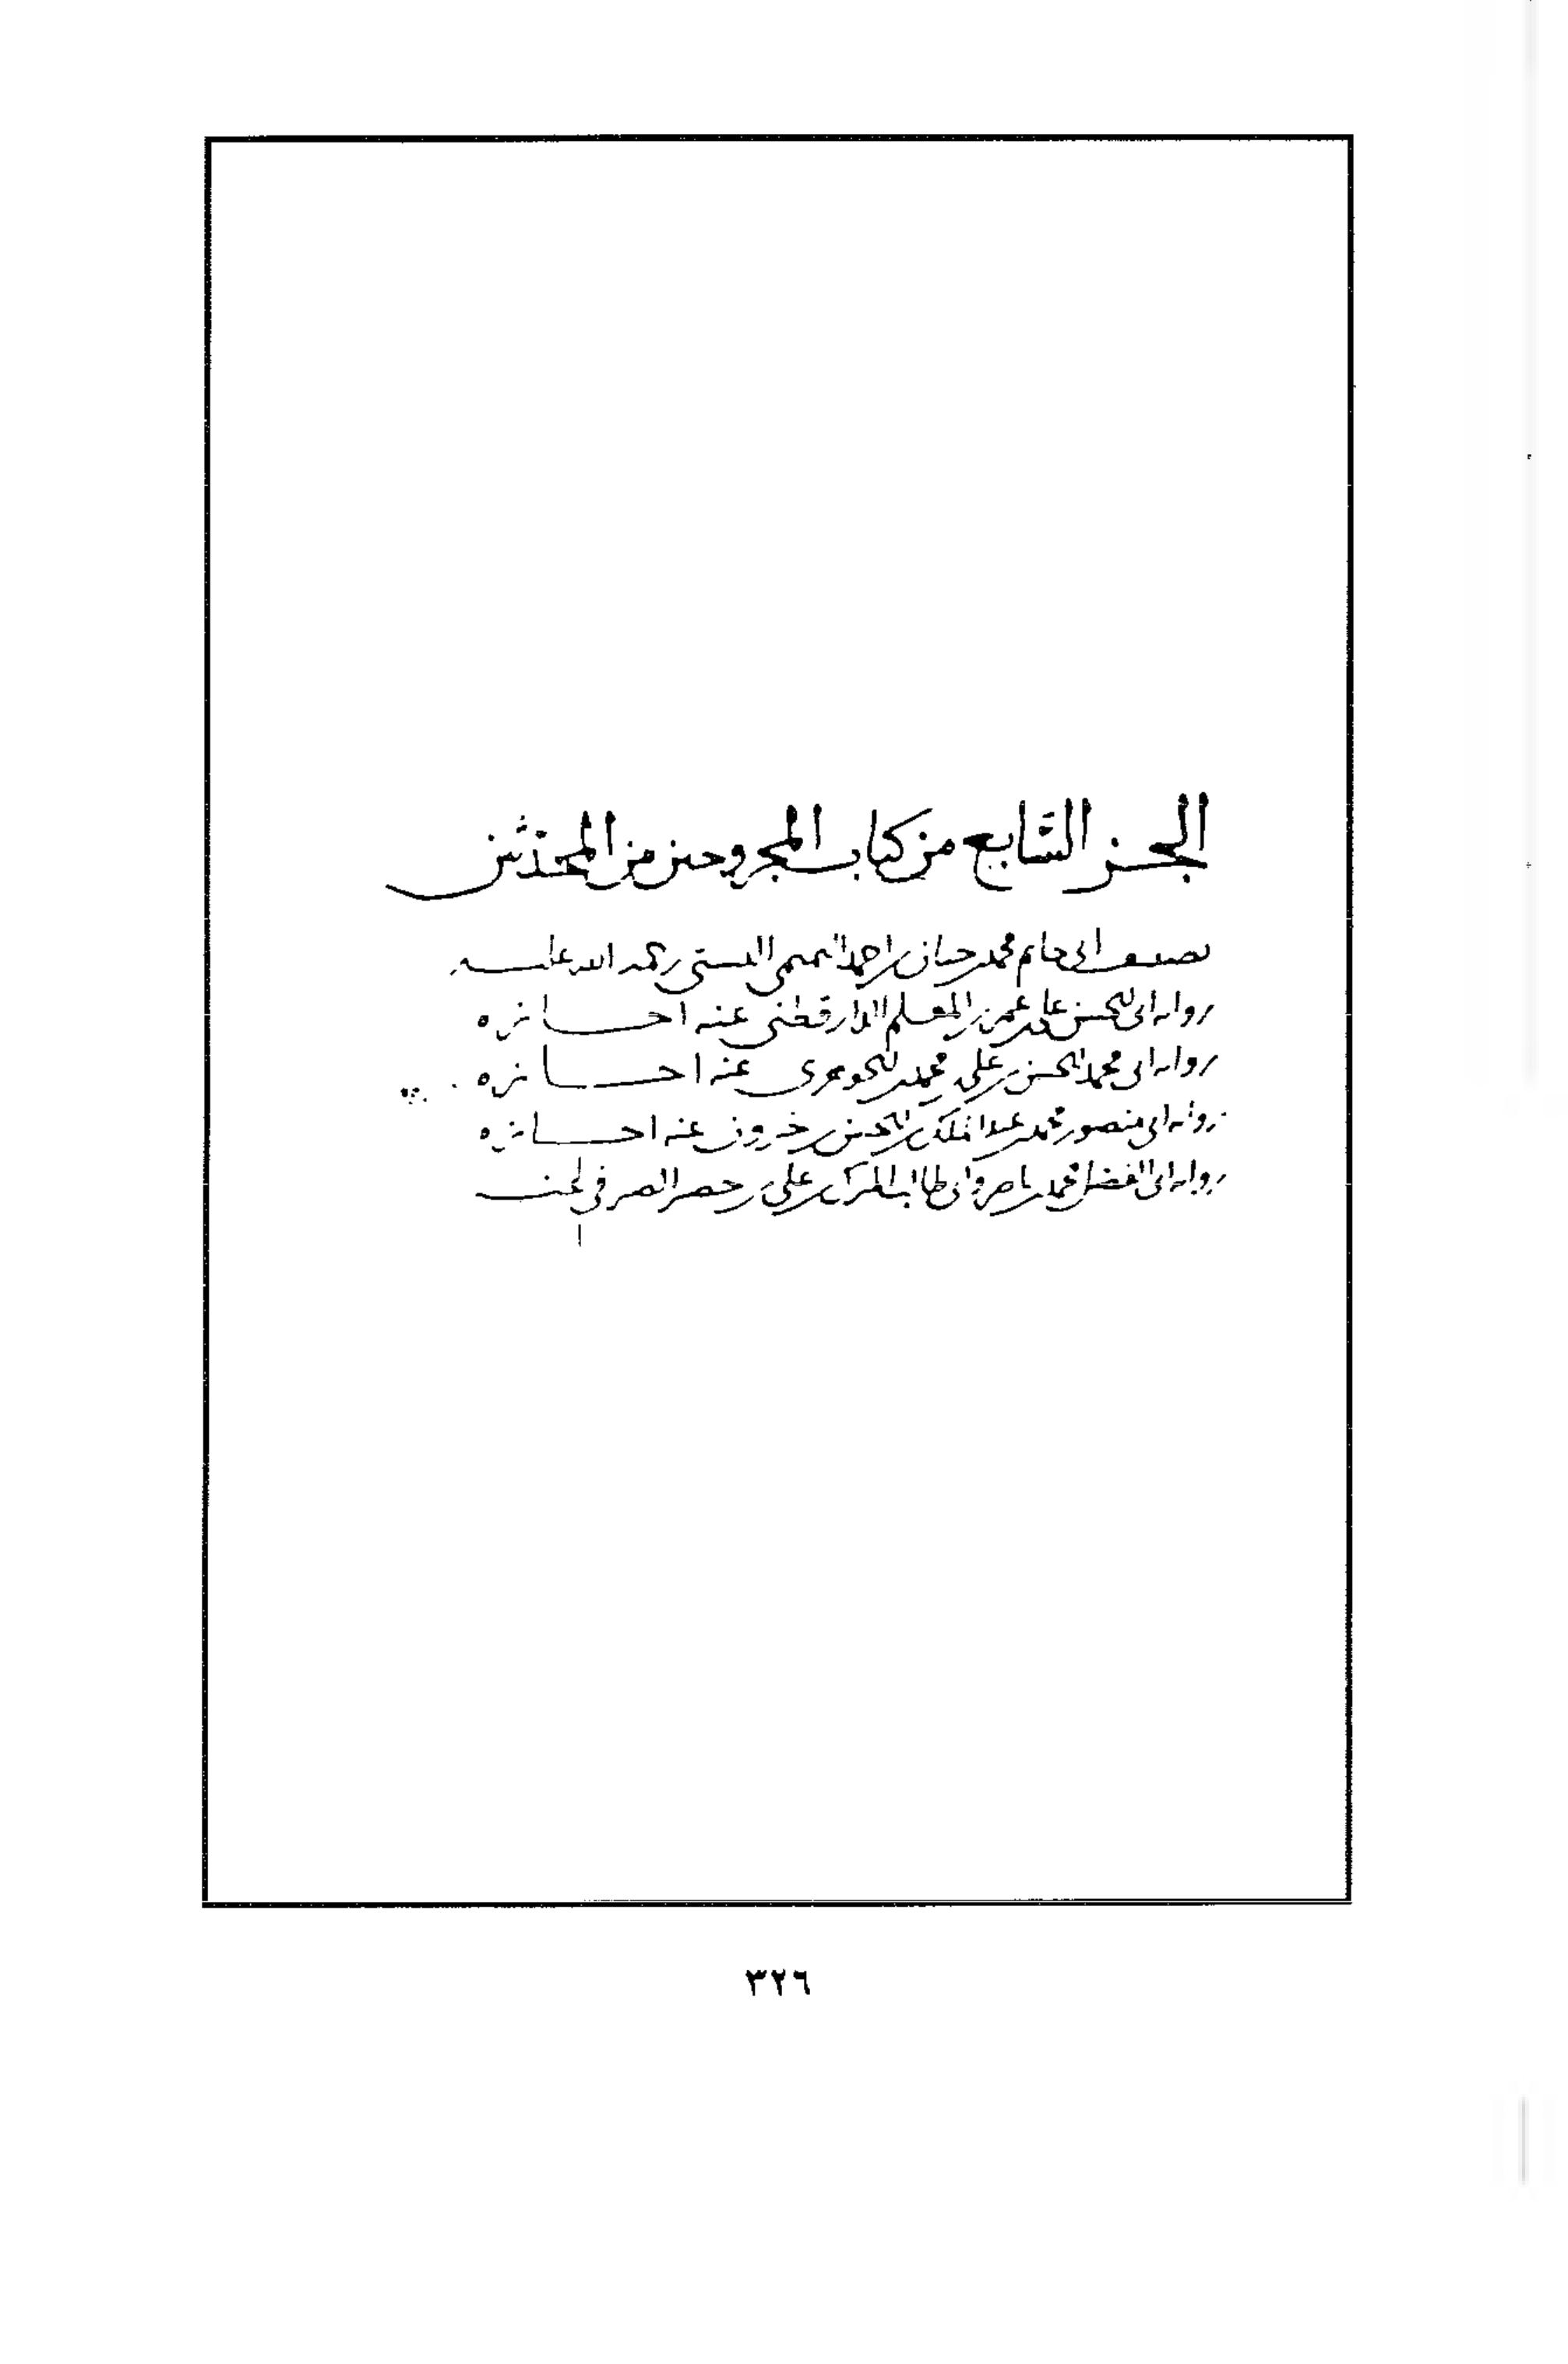 الجزء السابع من كتاب المجروحين من المحدثين
تصنيف ابى حاتم محمد بن حبان بن احمد التميمى البستى رحمة الله عليه
رواية ابى الحسن على بن عمر الدارقطنى عنه اجازة
رواية ابى محمد الحسن بن على بن محمد الجوهرى عنه اجازة
رواية ابى منصور محمد بن عبد الملك بن الحسن بن خيرون عنه اجازة
رواية ابى الفضل محمد بن ناصر وابى طالب المبارك بن على بن خضير الصيرفى
٣٢٦